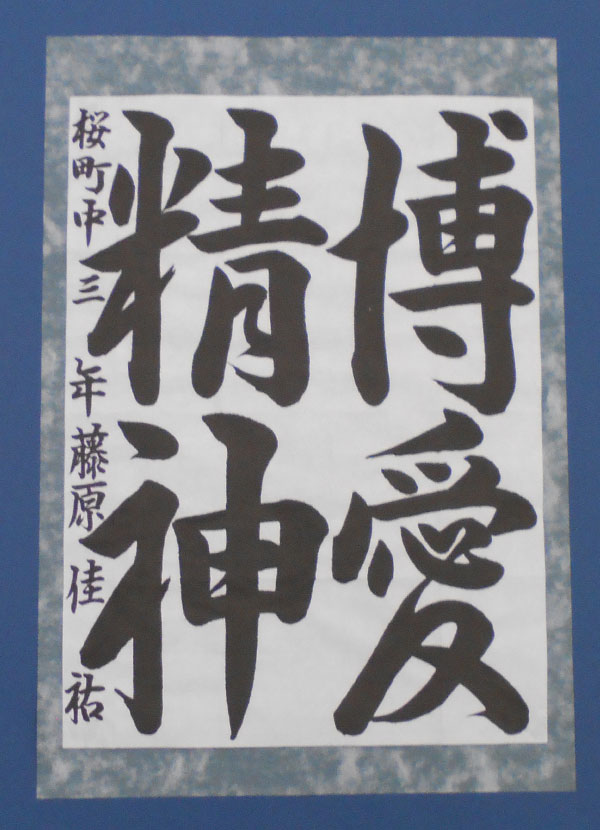 博愛
精神
桜町中三年藤原佳祐